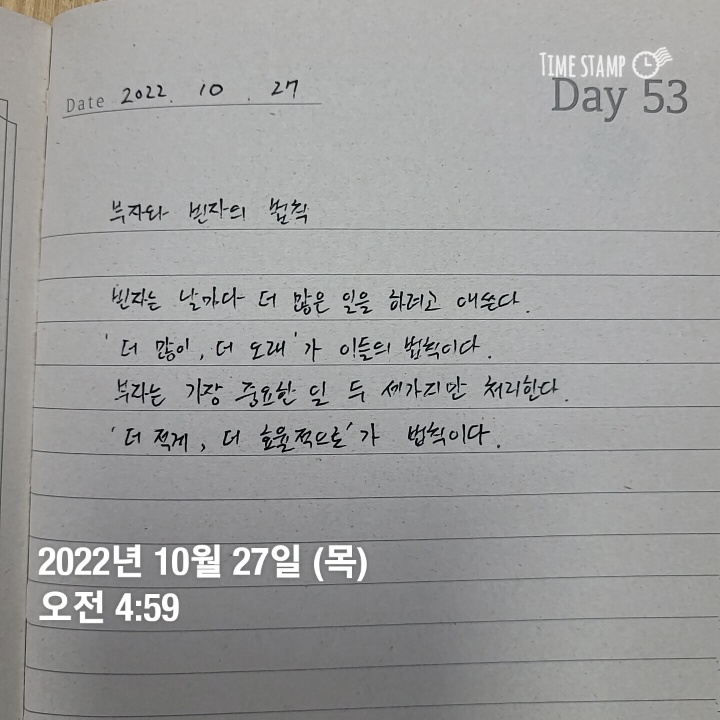 TIME STAMP
Day 53
Date 2022. 10. 27
부자와 빈자의 법칙
빈자는 날마다 더 많은 일을 하려고 애쓴다.
'더 많이, 더 오래'가 이들의 법칙이다.
부자는 가장 중요한 일 두 세가지만 처리한다.
'더 적게, 더 효율적으로'가 법칙이다.
2022년 10월 27일 (목)
오전 4:59